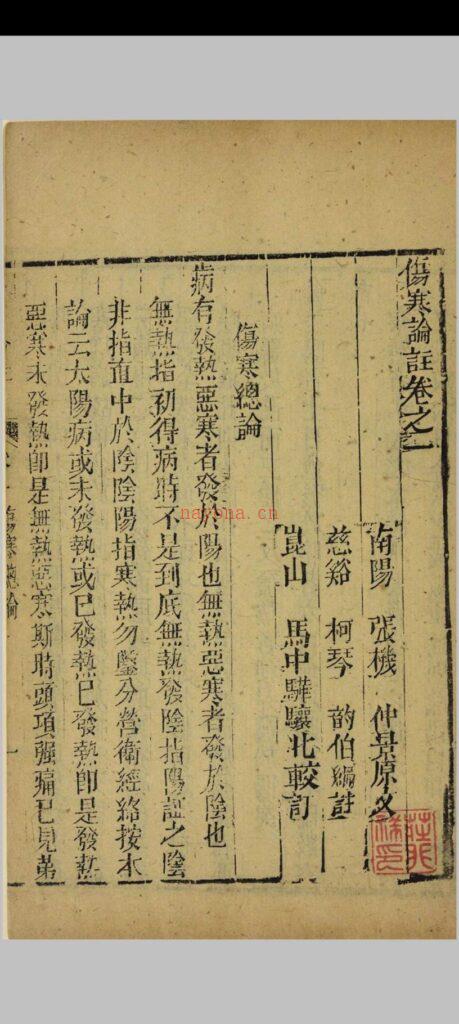 傷寒論註卷之一
南陽 張機 仲景原文
慈谿 柯琴 韵伯編註
崑山 馬中驊驤北較訂
傷寒總論
病有發熱惡寒者發於陽也無熱惡寒者發於陰也
無熱指初得病時不是到底無熱發陰指陽證之陰
非指直中於陰陰陽指寒熱勿鑿分營衛經絡按本
論云太陽病或未發熱或已發熱已發熱即是發熱
惡寒未發熱即是無熱惡寒斯時頭項强痛已見第
傷寒總論 一
nayona.cn